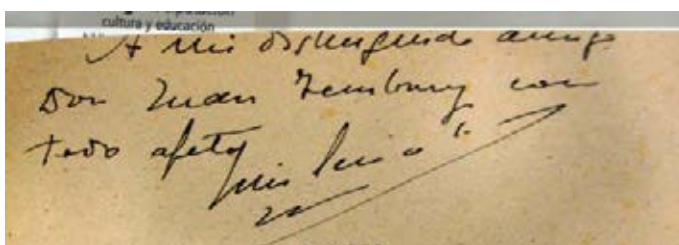 cultura y educación
A mi distinguido amigo
Don Juan Temboury con
todo afeto
Luis